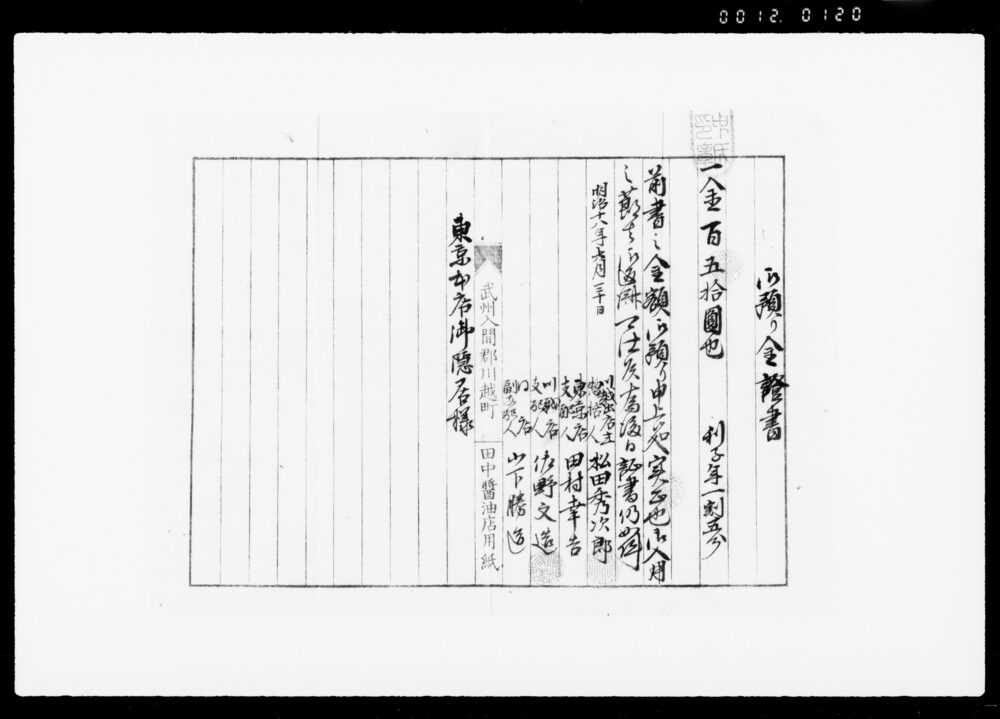 0012. 0120
御預り金證書
一金百五拾圓也 利子年一割五分
前書之金額御預り申上候処実正也御入用
之節者御返済可仕候為後日証書仍如件
明治十八年六月三十日
川越出店主
松田秀次郎
東京店
支配人
田村幸吉
川越店
支配人
佐野文造
同店
副支配人
山下勝造
武州入間郡川越町 田中醬油店用紙
東京本店御隠居様